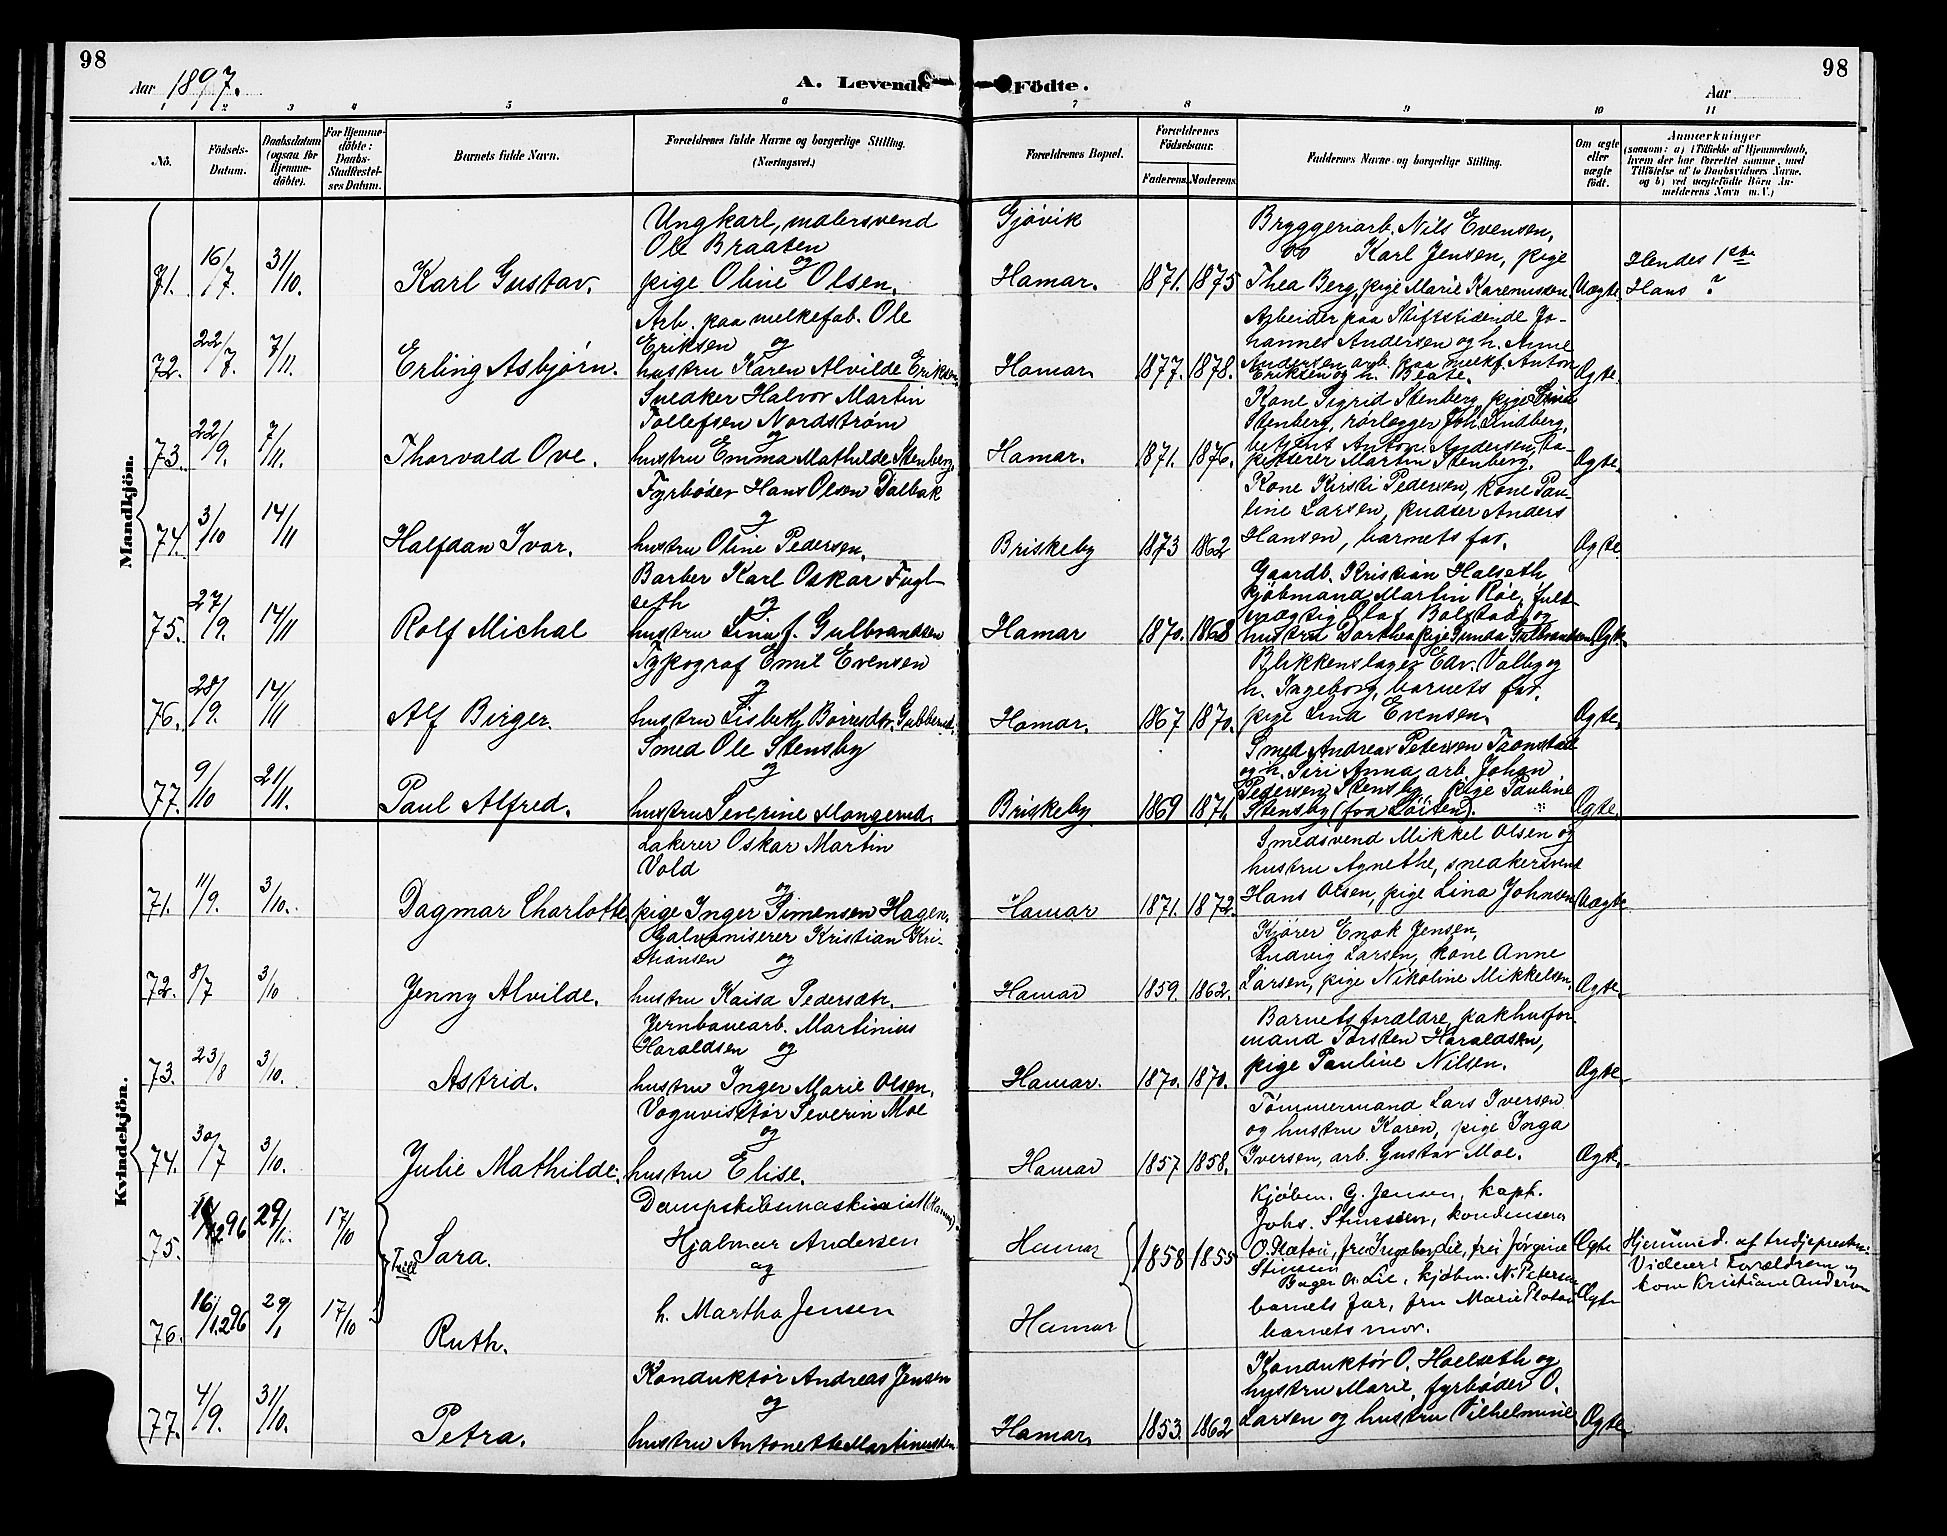 98
98
Aar 1897.
A. Levende Födte.
Aar
1 2 3 4 5 6 7 8 9 10 11
No. Födsels-Datum. Daabsdatum (ogsaa for Hjemmedöbte). For Hjemmedöbte: Daabs-Stadfæstelses Datum. Barnets fulde Navn. Forældrenes fulde Navne og borgerlige Stilling. (Næringsvei.) Forældrenes Bopæl. Forældrenes Födselsaar. Faderens. Moderens. Faddernes Navne og borgerlige Stilling. Om ægte eller uægte födt. Anmærkninger
(saasom: a) i Tilfælde af Hjemmedaab,
hvem der har forrettet samme, med
Tilföielse af to Daabsvidners Navne,
og b) ved uægtefödte Börn An-
melderens Navn m. V.)
Mandkjön.
Ungkarl, malersvend
Ole Braaten
og
71. 16/7. 31/10. Karl Gustav. pige Oline Olsen.
Gjøvik
Hamar. 1871. 1875
Bryggeriarb. Nils Evensen,
do Karl Jensen, pige
Thea Berg, pige Marie Karenussen. Uægte
Hendes 1ste
Hans ?
Arb. paa melkefab. Ole
Eriksen og
72. 22/7. 7/11. Erling Asbjørn. hustru Karen Alvilde Eriksen.
Hamar. 1877. 1878.
Arbeider paa Stiftstidende Jo-
hannes Andersen og h. Anne
Andersen, arb. paa melkf. Anton
Eriksen og h. Beate. Ægte.
Snedker Halvor Martin
Tollefsen Nordstrøm
og
73. 22/9. 7/11. Thorvald Ove. hustru Emma Mathilde Stenberg.
Hamar. 1871. 1876.
Kone Sigrid Stenberg, pige
Stenberg, rørlegger Joh. Lindberg,
betjent Anton Andersen, ta-
petserer Martin Stenberg. Ægte.
Fyrbøder Hans Olsen Dalbak
og
74. 3/10 14/11 Halfdan Ivar. hustru Oline Pedersen.
Briskeby 1873 1862
Kone Kirsti Pedersen, kone Pau-
line Larsen, pudser Anders
Hansen, barnets far. Ægte
Barber Karl Oskar Fugl-
seth og
75. 27/9. 14/11 Rolf Michal hustru Lina f. Gulbrandsen
Hamar 1870. 1868
Gaardb. Kristian Halseth
kjøbmand Martin Röe, fuld-
mægtig Olaf Bolstad og
hustru Dorthea, pige Gunda Gulbrandsen. Ægte.
Typograf Emil Evensen
og
76. 28/9. 14/11 Alf Birger. hustru
Hamar. 1867 1870.
Blikkenslager Edv. Valby og
h. Ingeborg, barnets far,
pige Lina Evensen. Ægte.
Smed Ole Stensby
og
77. 9/10 21/11. Paul Alfred. hustru Severine Mongerud.
Briskeby 1869 1871.
Smed Andreas Petersen
og h. Siri Anna, arb. Johan
Pedersen Stensby, pige Pauline
Stensby (fra Löiten). Ægte.
Kvindekjön.
Lakerer Oskar Martin
Vold
og
71. 11/9. 3/10. Dagmar Charlotte pige Inger Simensen Hagen.
Hamar 1871. 1872.
Smedsvend Mikkel Olsen og
hustru Agnethe, snedkersvend
Hans Olsen, pige Lina Johnsen Uægte
Galvaniserer Kristian Kri-
stiansen og
72. 8/7 3/10 Jenny Alvilde. hustru Kaisa Pedersdtr.
Hamar 1859. 1862.
Kjører Enok Jensen,
Ludvig Larsen, kone Anne
Larsen, pige Nikoline Mikkelsen. Ægte.
Jernbanearb. Martinius
Haraldsen og
73. 23/8 3/10. Astrid. hustru Inger Marie Olsen.
Hamar. 1870. 1870.
Barnets foraldre, pakhusfor-
mand Torsten Haraldsen,
pige Pauline Nilsen. Ægte
Vognvisitør Severin Moe
og
74. 30/7 3/10. Julie Mathilde. hustru Elise.
Hamar 1857 1858.
Tømmermand Lars Iversen
og hustru Karen, pige Inga
Iversen, arb. Gustav Moe. Ægte.
Dampskibsmaskinist (Hamar).
75. 16/12 96 29/1. 17/10 Tvill. Sara. Hjalmar Andersen
og
Hamar 1858 1855
Kjøbm. G. Jensen, kapt.
Johs. Stinessen, kondensera
O. Platou, frk Ingeborg Lie, frk Jörgine Ægte
Stinsen
Hjemmed. af tredjepresten.
Vidner: Forældrene og
kone Kristiane Andersen
76. 16/12 96 29/1 17/10 Ruth. h. Martha Jensen
Hamar
Bager A. Lie, kjøbm. N. Petersen
barnets far, fru Marie Platou Ægte
barnets mor.
Konduktør Andreas Jensen
og
77. 4/9. 31/10. Petra. hustru Antonette Martinussen
Hamar. 1853. 1862
Konduktör O. Hoelseth og
hustru Marie, fyrbøder O.
Larsen og hustru Vilhelmine. Ægte